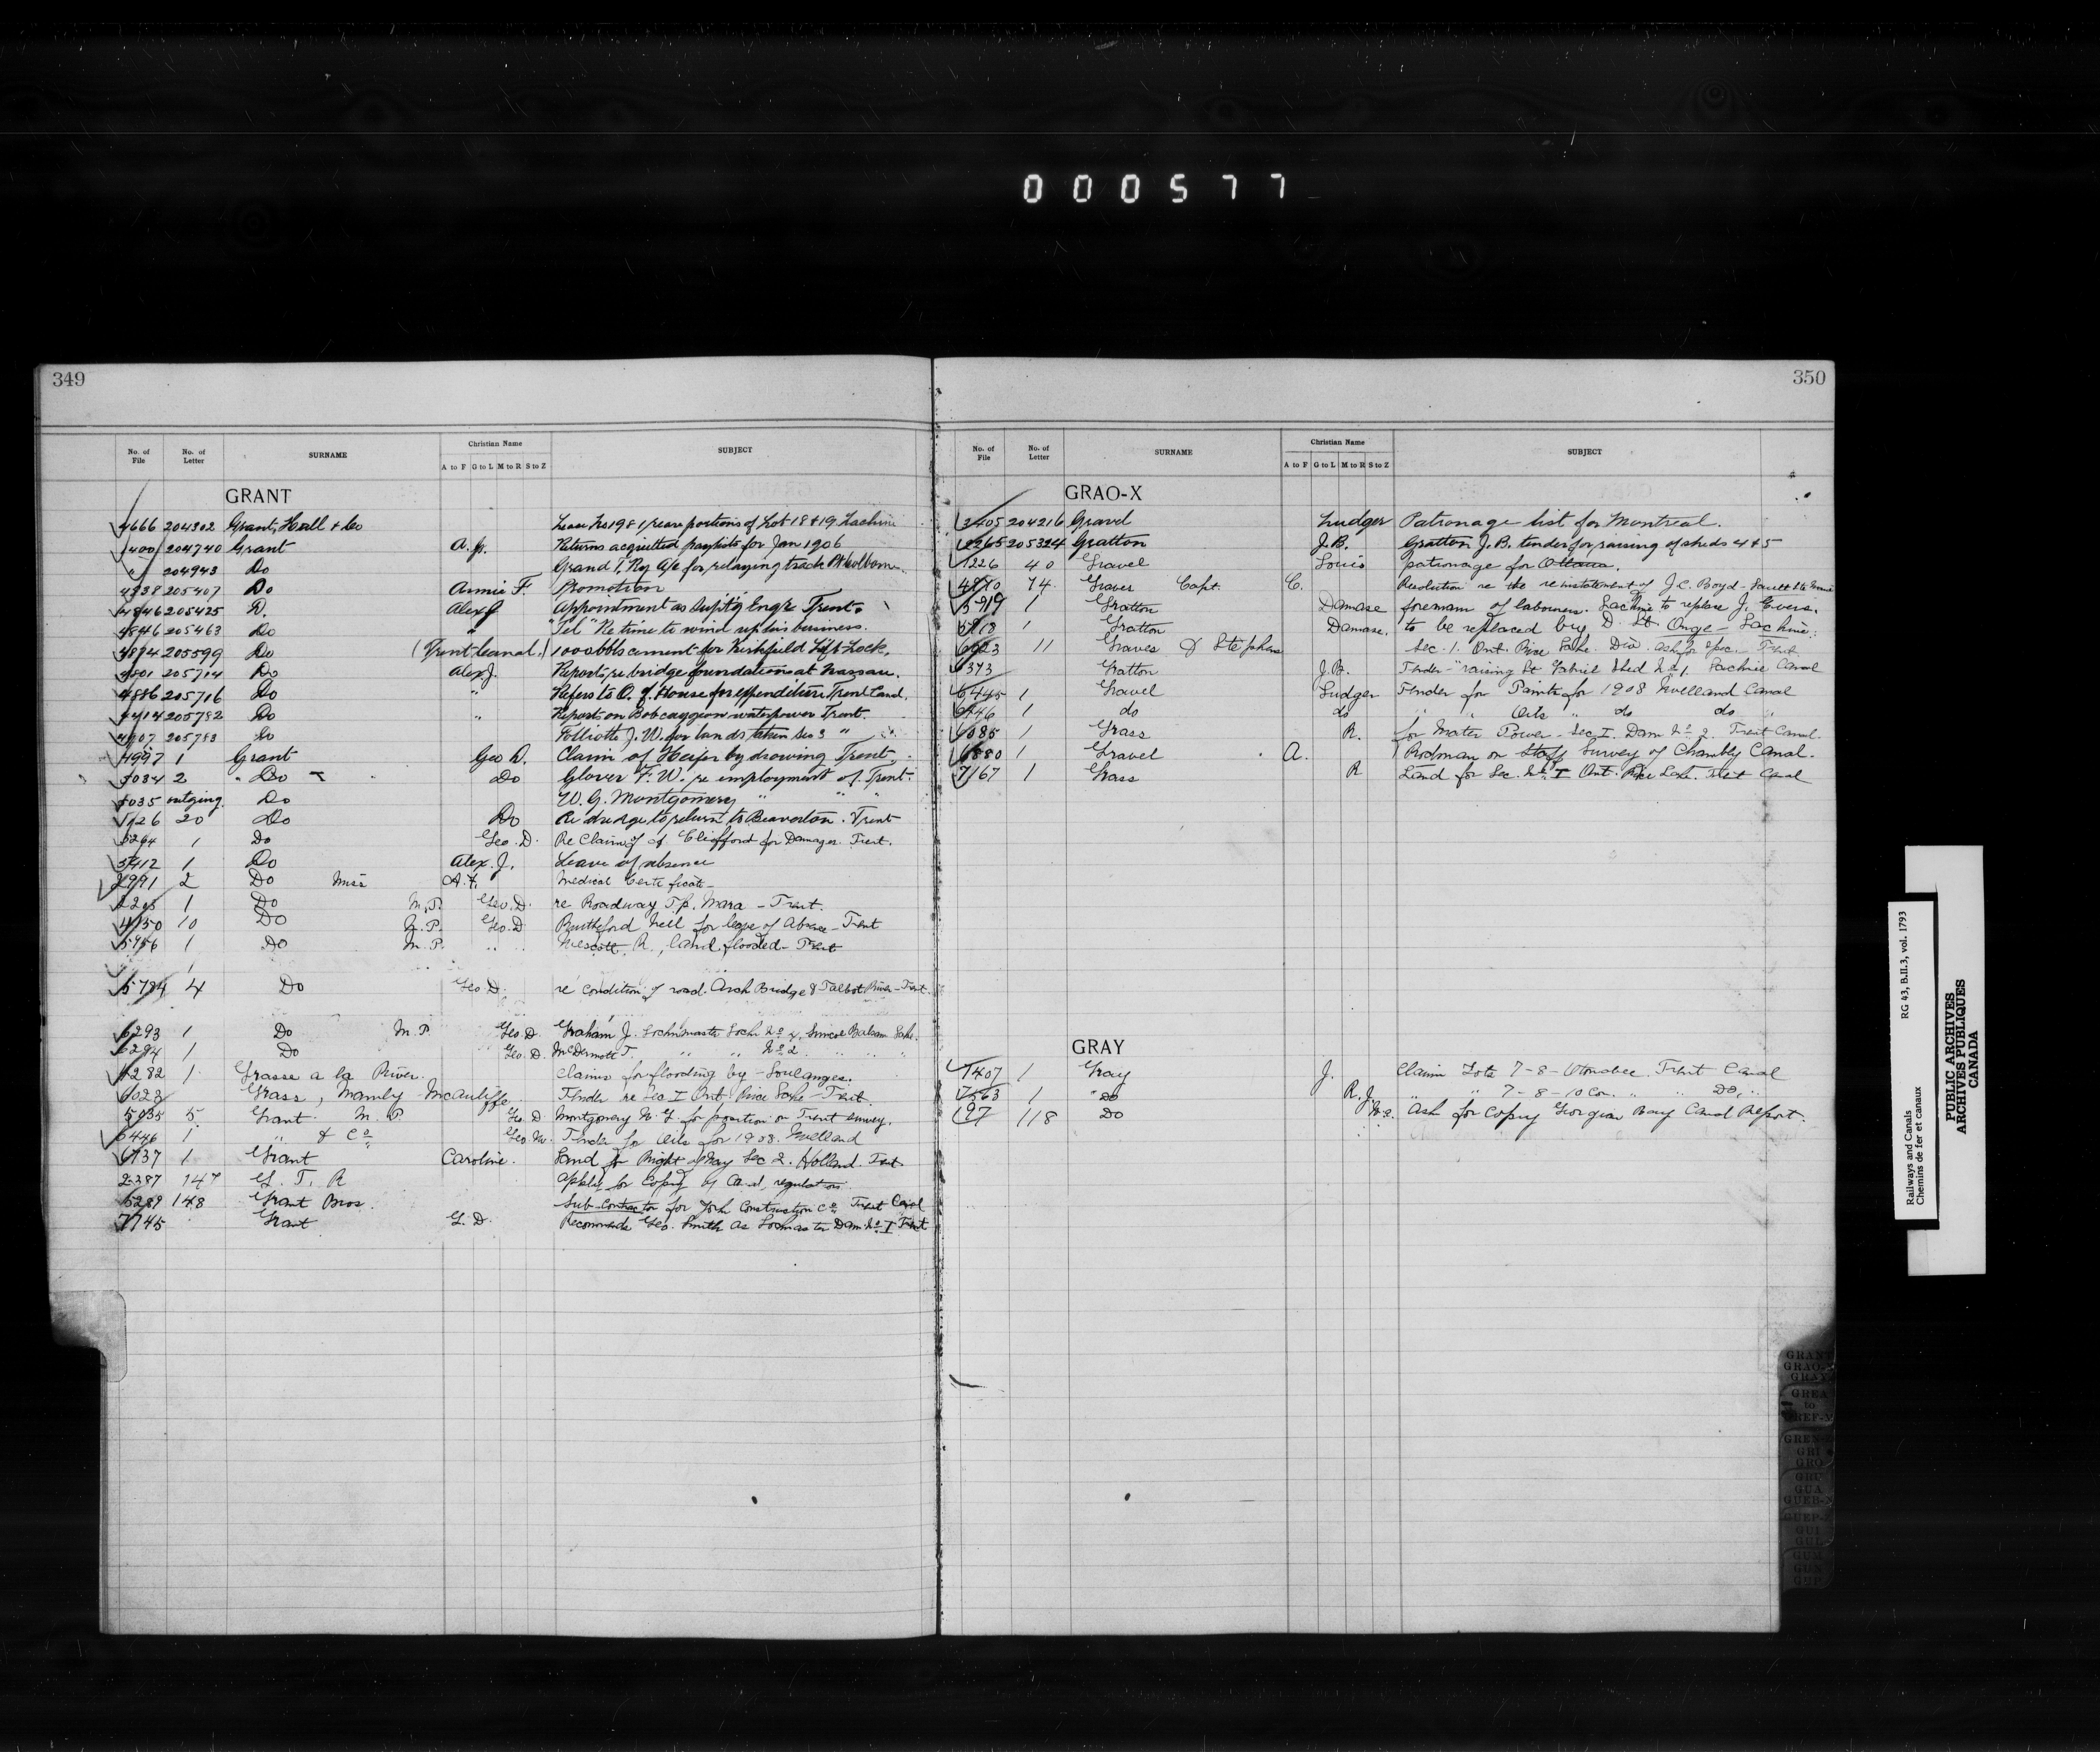 000577
349
No. of File No. of Letter SURNAME Christian Name A to F G to L M to R S to Z SUBJECT
GRANT
4666 204302 Grant, Hall & Co Lease No 1981 re portions of Lot 18 & 19 Lachine
1400 204740 Grant A. J. Returns acquitted paylists for Jan 1906
" 204943 Do Grand T. Ry a/c for relaying track Pt Colborne
4838 205407 Do Annie F. Promotion
4846 205425 D. Alex J Appointment as Supt'g Engr Trent
4846 205463 Do " "Tel" Re time to wind up his business.
4874 205599 Do (Trent Canal.) 1000 bbls cement for Kirkfield Lift Lock.
4801 205714 Do Alex J. Reports re bridge foundation at Nassau.
4886 205716 Do " Refers to O. of House for expenditure Trent Canal.
4414 205782 Do " Reports on Bobcaygeon waterpower Trent.
4907 205783 Do Folliott J. W. for lands taken Sec 3 "
4997 1 Grant Geo D. Claim of Heifer by drowing Trent.
5034 2 " Do Do Glover F. W. re employment of. Trent.
5035 outging. Do W. G. Montgomery " " "
5126 20 Do Do Re dredge to return to Beaverton. Trent
5294 1 Do Geo. D. Re Claim of Clifford for Damages. Trent.
5412 1 Do Alex. J. Leave of absence
2991 2 Do Miss A. F. Medical Certificate
1 Do M.P. Geo. D. re Roadway Tp. Mara - Trent.
4150 10 Do M.P. Geo. D Neil for leave of Absence - Trent
5956 1 Do M.P. " " R., land flooded - Trent
5784 4 Do Geo D. re condition of road. Arch Bridge & Talbot River - Trent.
6293 1 Do M.P. Geo. D. Graham J. Lockmaster Lock No 4, Simcoe Balsam Lake.
6294 1 Do Geo. D. McDermott T. " " No 2 " " "
6282 1 Grasse a la River. Claims for flooding by - Soulanges.
6023 Grass, Manley McAuliffe Tender re Sec I Ont. Rice Lake - Trent.
5035 5 Grant M.P. Geo. D Montgomery W. G. for position on Trent survey.
6446 1 " & Co Geo. M. Tender for Oils for 1908. Welland
6737 1 Grant Caroline. Land for Right of Way Sec 2. Holland. Trent
2387 147 G. T. R Apply for Copy of Canal regulations.
5289 148 Grant Bros. Sub-Contractor for York Construction Co Trent Canal
7745 Grant G. D. Recommends Geo. Smith as Lockmaster Dam No I Trent
350
No. of File No. of Letter SURNAME Christian Name A to F G to L M to R S to Z SUBJECT
GRAO-X
3405 204216 Gravel Ludger Patronage list for Montreal.
2265 205324 Gratton J.B. Gratton J. B. tender for raising of sheds 4 & 5
1226 40 Gravel Louis patronage for Ottawa.
4810 74 Graves Capt. C. Resolution re the reinstatement of J. C. Boyd - Sault Ste Marie
5719 1 Gratton Damase foreman of labourers. Lachine to replace J. Evers.
5718 1 Gratton Damase. to be replaced by D. St. Onge - Lachine.
6023 11 Graves & Stephens Sec. 1. Ont. Rice Lake. Div. ask for spec. - Trent
6373 Gratton J.B. Tender - "raising St. Gabriel Shed No 1. Lachine Canal
6445 1 Gravel Ludger Tender for Paints for 1908 Welland Canal
6446 1 do do " " Oils " do do "
6085 1 Grass R. for Water Power - Sec. I. Dam No 2. Trent Canal.
6880 1 Gravel A. Rodman on Staff Survey of Chambly Canal.
7167 1 Grass R Land for Sec. No I Ont. Rice Lake. Trent Canal
GRAY
7407 1 Gray J. Claim Lots 7-8-Otonabee. Trent Canal
7563 1 " Do R. J. " " 7-8-10 Con. " " Do, "
197 118 Do Ask for Copy Georgian Bay Canal Report.
GRANT
GRAO-X
GRAY
GREA
to
GREF-M
Railways and Canals RG 43, B.II.3, vol. 1793
Chemins de fer et canaux
PUBLIC ARCHIVES
ARCHIVES PUBLIQUES
CANADA